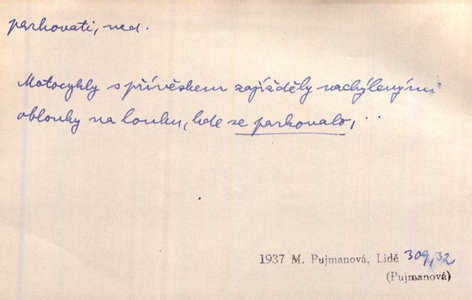 parkovati, ned.
Motocykly s přívěskem zajížděly nachýlenými
oblouky na louku, kde se parkovalo, ..
1937 M. Pujmanová, Lidé 309,32
(Pujmanová)